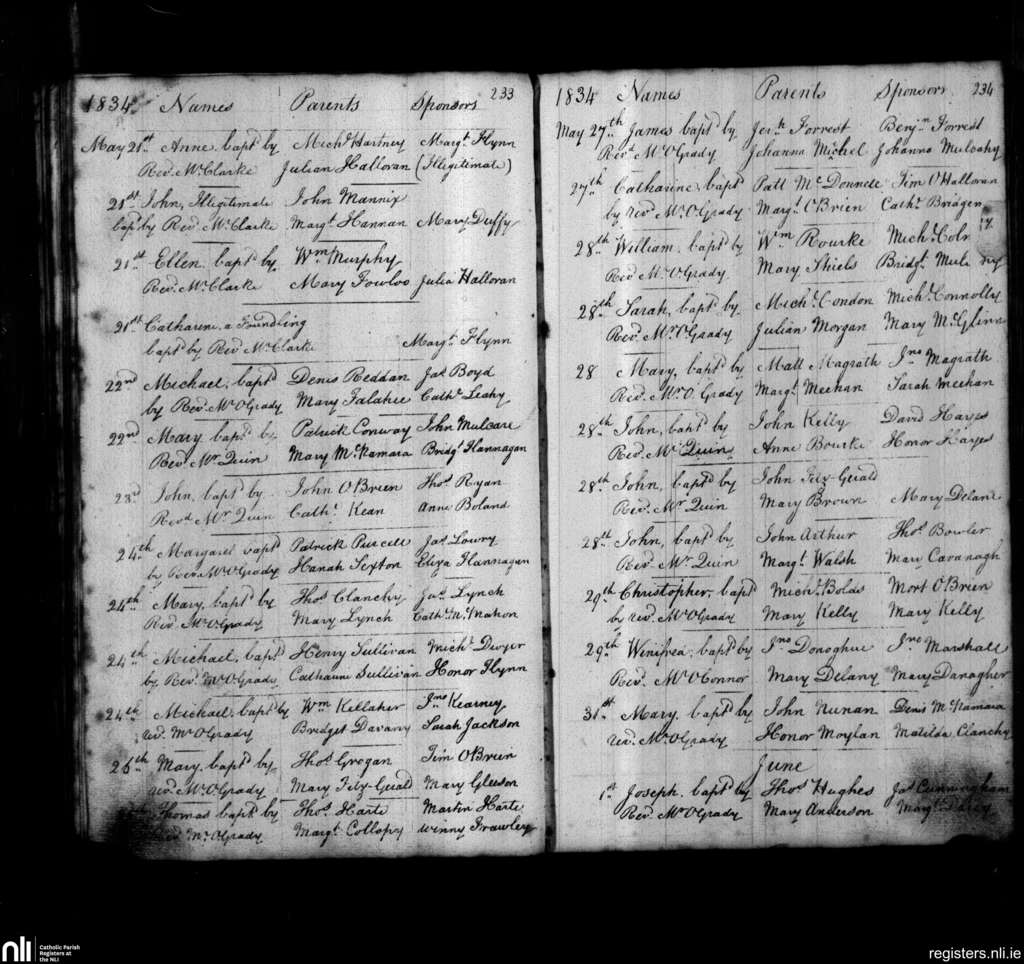 1834 Names Parents Sponsors 233
May 21st Anne bapt.d by Mich.l Hartney Marg.t Flynn
Rev.d Mr. Clarke Julian Halloran (Illegitimate)
21st John, Illegitimate John Mannix
bap.t by Rev.d Mr. Clarke Marg.t Hannan Mary Duffy
21st Ellen bapt.d by Wm Murphy
Rev.d Mr. Clarke Mary Fowloo Julia Halloran
21st Catharine, a Foundling
bapt.d by Rev.d Mr. Clarke Marg.t Flynn
22nd Michael, bapt.d Denis Reddan Jas Boyd
by Rev.d Mr. O Grady Mary Falahee Cath.e Leahy
22nd Mary, bapt.d by Patrick Conway John Mulcare
Rev.d Mr Quin Mary McNamara Bridg.t Hannagan
23d John, bapt.d by John O Brien Thos Ryan
Revd Mr Quin Cath.e Kean Anne Boland
24th Margaret bapt.d Patrick Purcell Jas Lowry
by Rev.d Mr. O Grady Hanah Sexton Eliza Hannagan
24th Mary, bapt.d by Thos Clanchy Jas Lynch
Rev.d Mr. O Grady Mary Lynch Cath.e McMahon
24th Michael, bapt.d Henry Sullivan Mich.l Dwyer
by Rev.d Mr. O Grady Catharine Sullivan Honor Flynn
24th Michael, bapt.d by Wm Kellaher Jno Kearney
rev.d Mr O Grady Bridget Davany Sarah Jackson
26th Mary, bapt.d by Thos Grogan Tim O Brien
rev.d Mr. O Grady Mary Fitz-Gerald Mary Gleeson
Thomas bapt.d by Thos Harte Martin Harte
Rev.d Mr. O Grady Marg.t Collopy Winny Frawley
1834 Names Parents Sponsors 234
May 27th James bapt.d by Jer.h Forrest Benj.n Forrest
Rev.d Mr. O Grady Johanna Michel Johanna Mulcahy
27th Catharine, bapt.d Patt McDonnell Tim O Halloran
by rev.d Mr. O Grady Marg.t O Brien Cath.e
28th William, bapt.d by Wm Rourke Mich.l
Rev.d Mr. O Grady. Mary Shiels Bridg.t
28th Sarah, bapt.d by Mich.l Condon Mich.l Connolly
Rev.d Mr. O Grady Julian Morgan Mary McGlinn
28 Mary, bapt.d by Matt Magrath Jno Magrath
Rev.d Mr. O Grady Marg.t Meehan Sarah Meehan
28th John, bapt.d by John Kelly David Hayes
Rev.d Mr. Quin Anne Bourke Honor Hayes
28th John, bapt.d by John Fitz-Gerald
Rev.d Mr. Quin Mary Brown Mary Delane
28th John, bapt.d by John Arthur Thos Bowler
Rev.d Mr. Quin Marg.t Walsh Mary Cavanagh
29th Christopher, bapt.d Mich.l Bolds Mort O Brien
by rev.d Mr. O Grady Mary Kelly Mary Kelly
29th Winifrea, bapt.d by Jno Donoghue Jno Marshall
Rev.d Mr. O Connor Mary Delany Mary Danagher
31st Mary, bapt.d by John Nunan Denis McNamara
rev.d Mr. O Grady Honor Moylan Matilda Clanchy
June
1st Joseph, bapt.d by Thos Hughes Jas Cunningham
Rev.d Mr. O Grady Mary Anderson Marg.t
nli Catholic Parish
Registers at
the NLI
registers.nli.ie